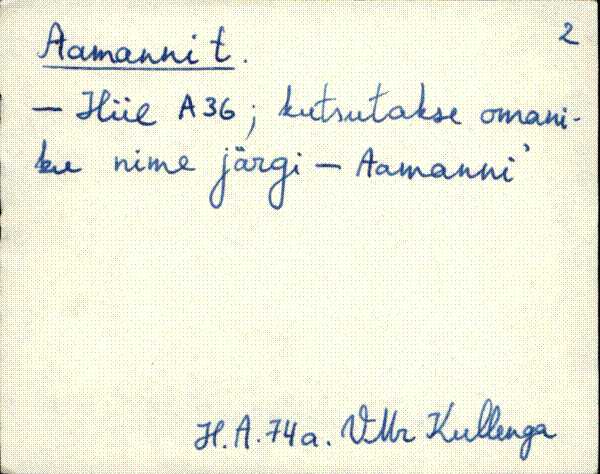 2
Aamanni t.
— Hiie A36; kutsutakse omani-
ku nime järgi — Aamanni'
H.A. 74a. VMr Kullenga